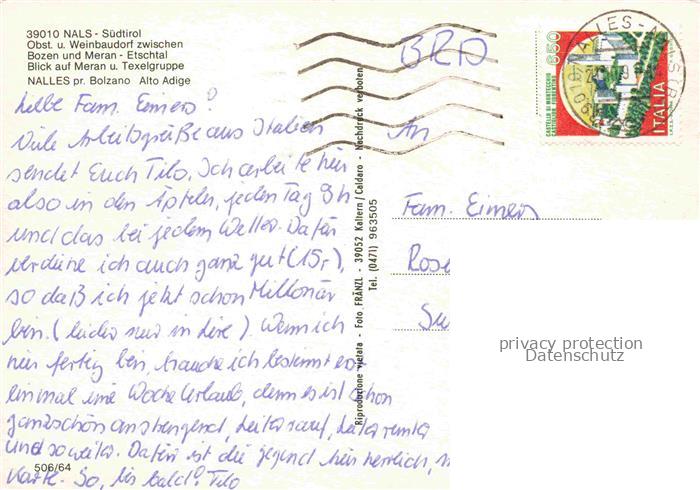 39010 NALS - Südtirol
Obst. u. Weinbaudorf zwischen
Bozen und Meran - Etschtal
Blick auf Meran u. Texelgruppe
NALLES pr. Bolzano Alto Adige
BRD
650
CASTELLO DI MONTECCHIO
CASTIGLION FIORENTINO
ITALIA
Liebe Fam. Eimers!
Viele Arbeitsgrüße aus Italien
sendet Euch Tilo. Ich arbeite hier
also in den Äpfeln, jeden Tag 9h
und das bei jedem Wetter. Dafür
verdiene ich auch ganz gut (15,-),
so daß ich jetzt schon Millionär
bin. (leider nur in Lire). Wenn ich
hier fertig bin, brauche ich bestimmt erst
einmal eine Woche Urlaub, denn es ist schon
ganzschön anstrengend, Leiter rauf, Leiter runter
und so weiter. Dafür ist die Gegend hier herrlich,
Karte. So, bis bald! Tilo
506/64
Riproduzione vietata - Foto FRÄNZL - 39052 Kaltern / Caldaro - Nachdruck verboten
Tel. (0471) 963505
An
Fam. Eimers
Rose
privacy protection
Datenschutz